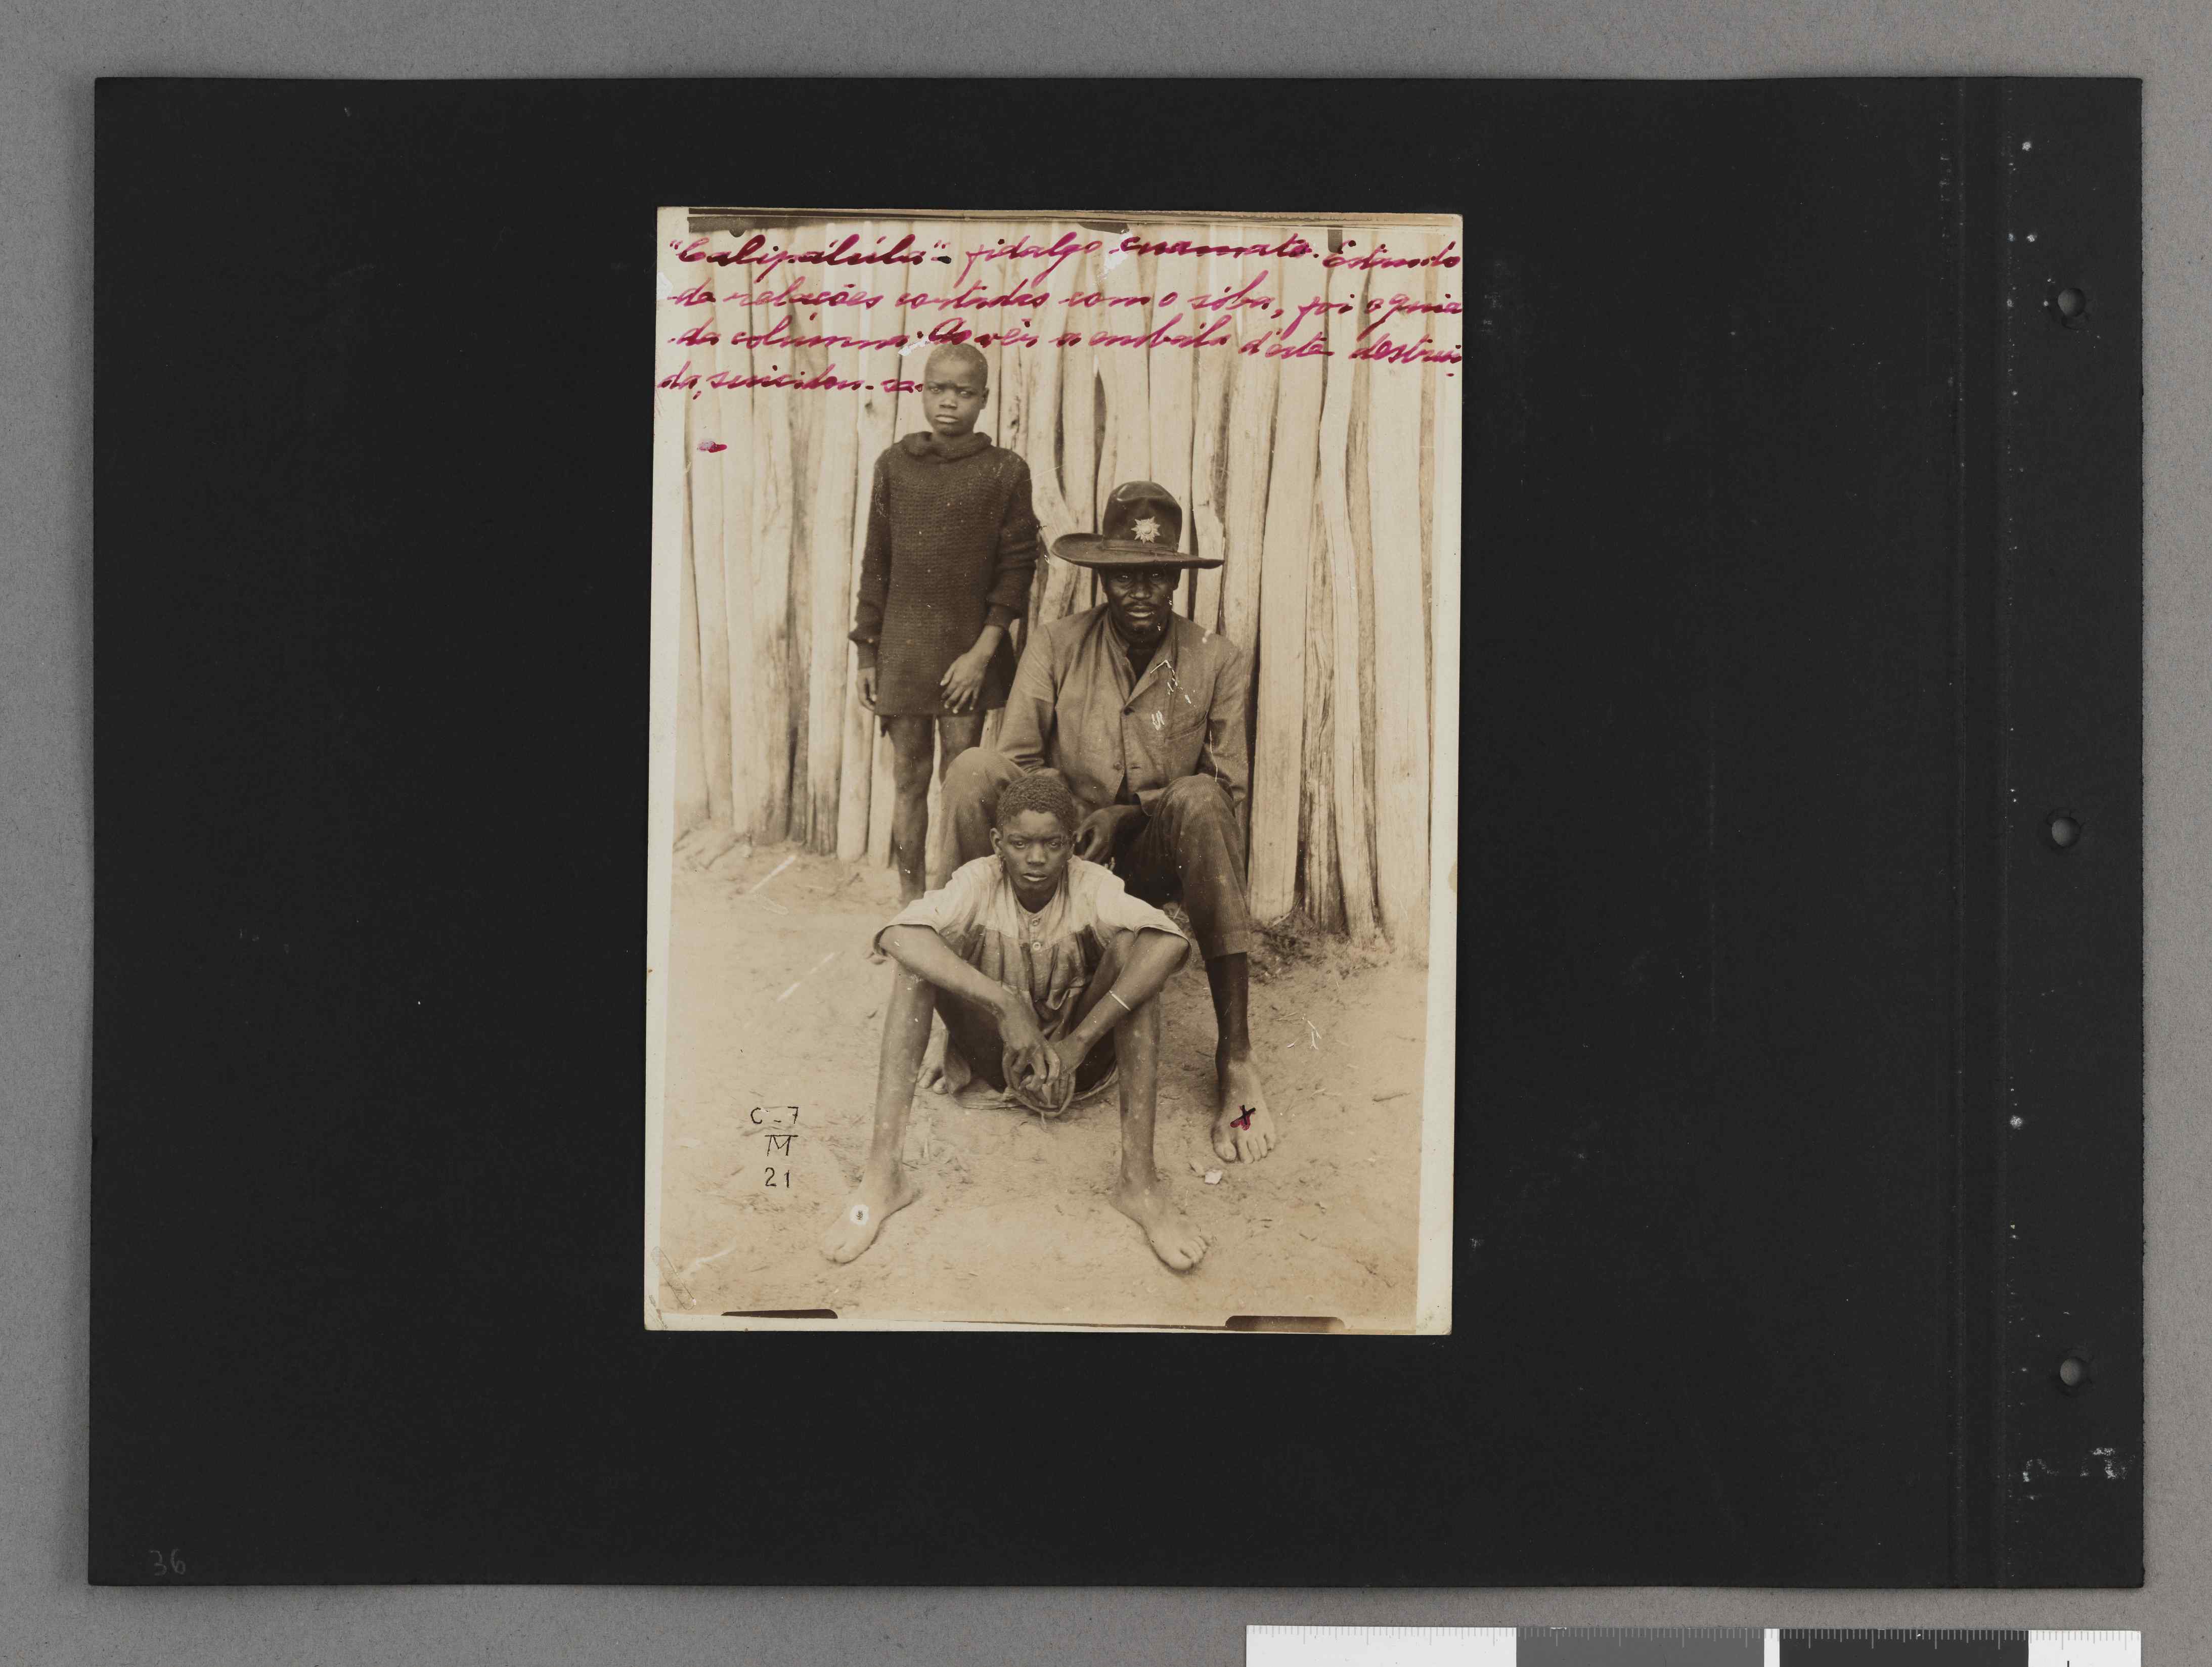 "Calipálúla" - fidalgo cuamato. Estando
de relações cortadas com o sóba, foi o guia
da columna. Ao vêr a embala d'este destrui-
da, suicidou-se.
C-7
M
21
36